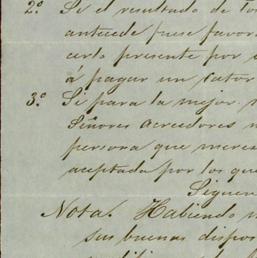 2º Si el resultado de los
antecede fuese favor
cerlo presente por
á pagar un cator
3º Si para la mejor
Señores acreedores
persona que merez
aceptada por los que
Siguen
Nota. Habiendo
sus buenas dispos